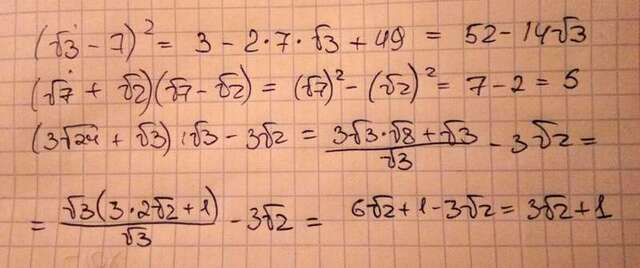 (√3 - 7)² = 3 - 2·7·√3 + 49 = 52 - 14√3
(√7 + √2)(√7 - √2) = (√7)² - (√2)² = 7 - 2 = 5
(3√24 + √3) : √3 - 3√2 = (3√3·√8 + √3)/√3 - 3√2 =
= √3(3·2√2 + 1)/√3 - 3√2 = 6√2 + 1 - 3√2 = 3√2 + 1